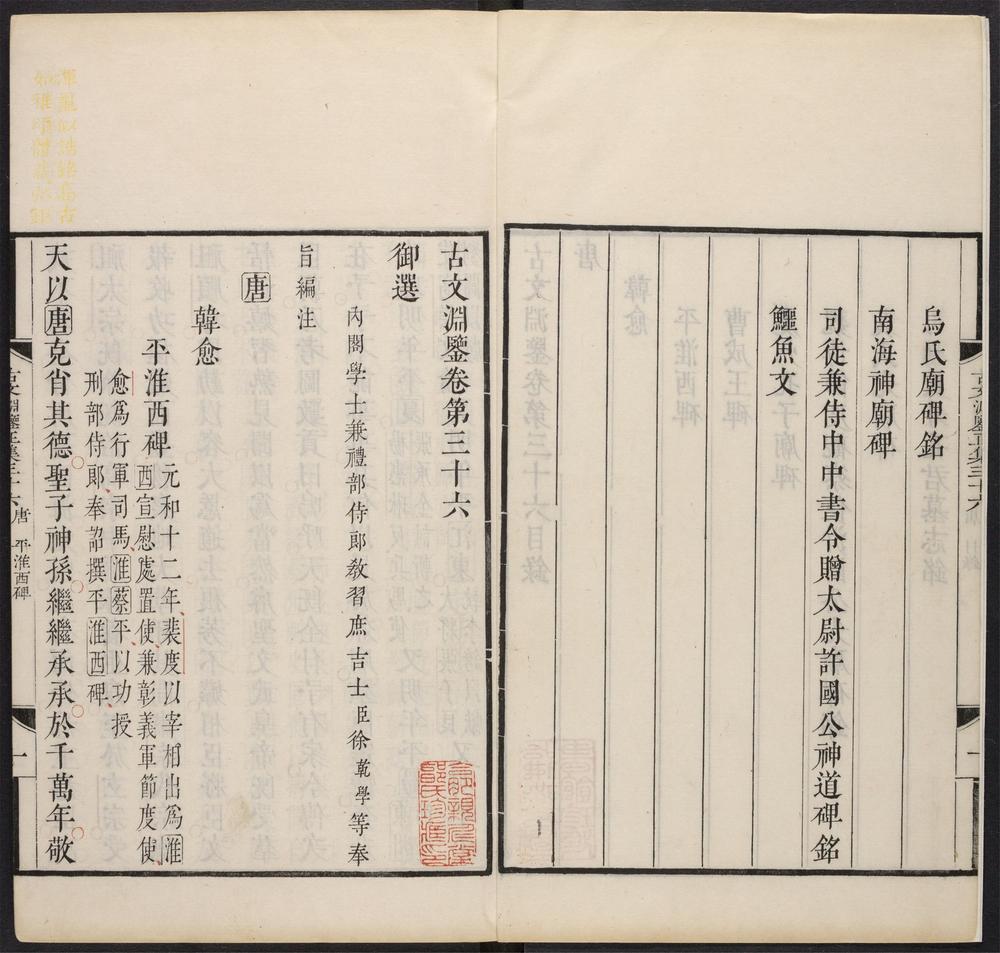 烏氏廟碑銘
南海神廟碑
司徒兼侍中中書令贈太尉許國公神道碑銘
鱷魚文
古文淵鑒卷第三十六
御選
內閣學士兼禮部侍郎教習庶吉士臣徐乾學等奉
旨編注
唐
韓愈
平淮西碑
元和十二年裴度以宰相出爲淮
西宣慰處置使兼彰義軍節度使
愈爲行軍司馬淮蔡平以功授
刑部侍郎奉詔撰平淮西碑
天以唐克肖其德聖子神孫繼繼承承於千萬年敬
唐 平淮西碑
一